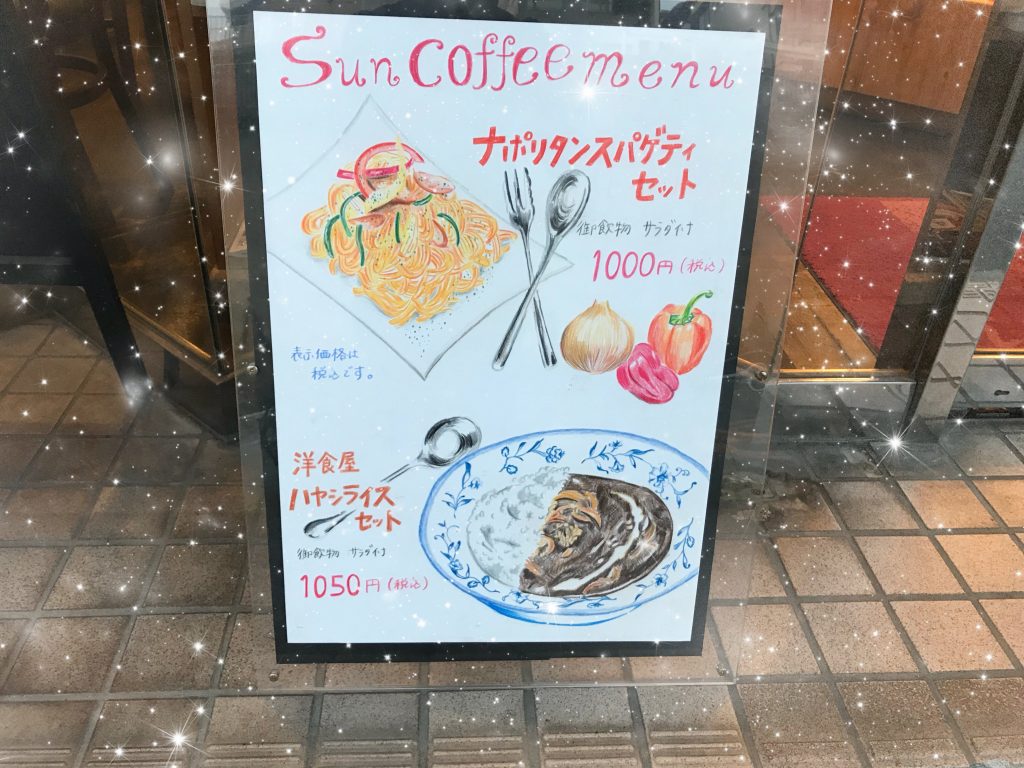 Sun coffee menu
ナポリタンスパゲティ
セット
御飲物 サラダ付
1000円(税込)
表示価格は
税込です。
洋食屋
ハヤシライス
セット
御飲物 サラダ付
1050円(税込)